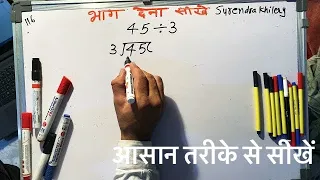 116
भाग देना सीखे Surendra Khilery
45÷3
3)45(
आसान तरीके से सीखें